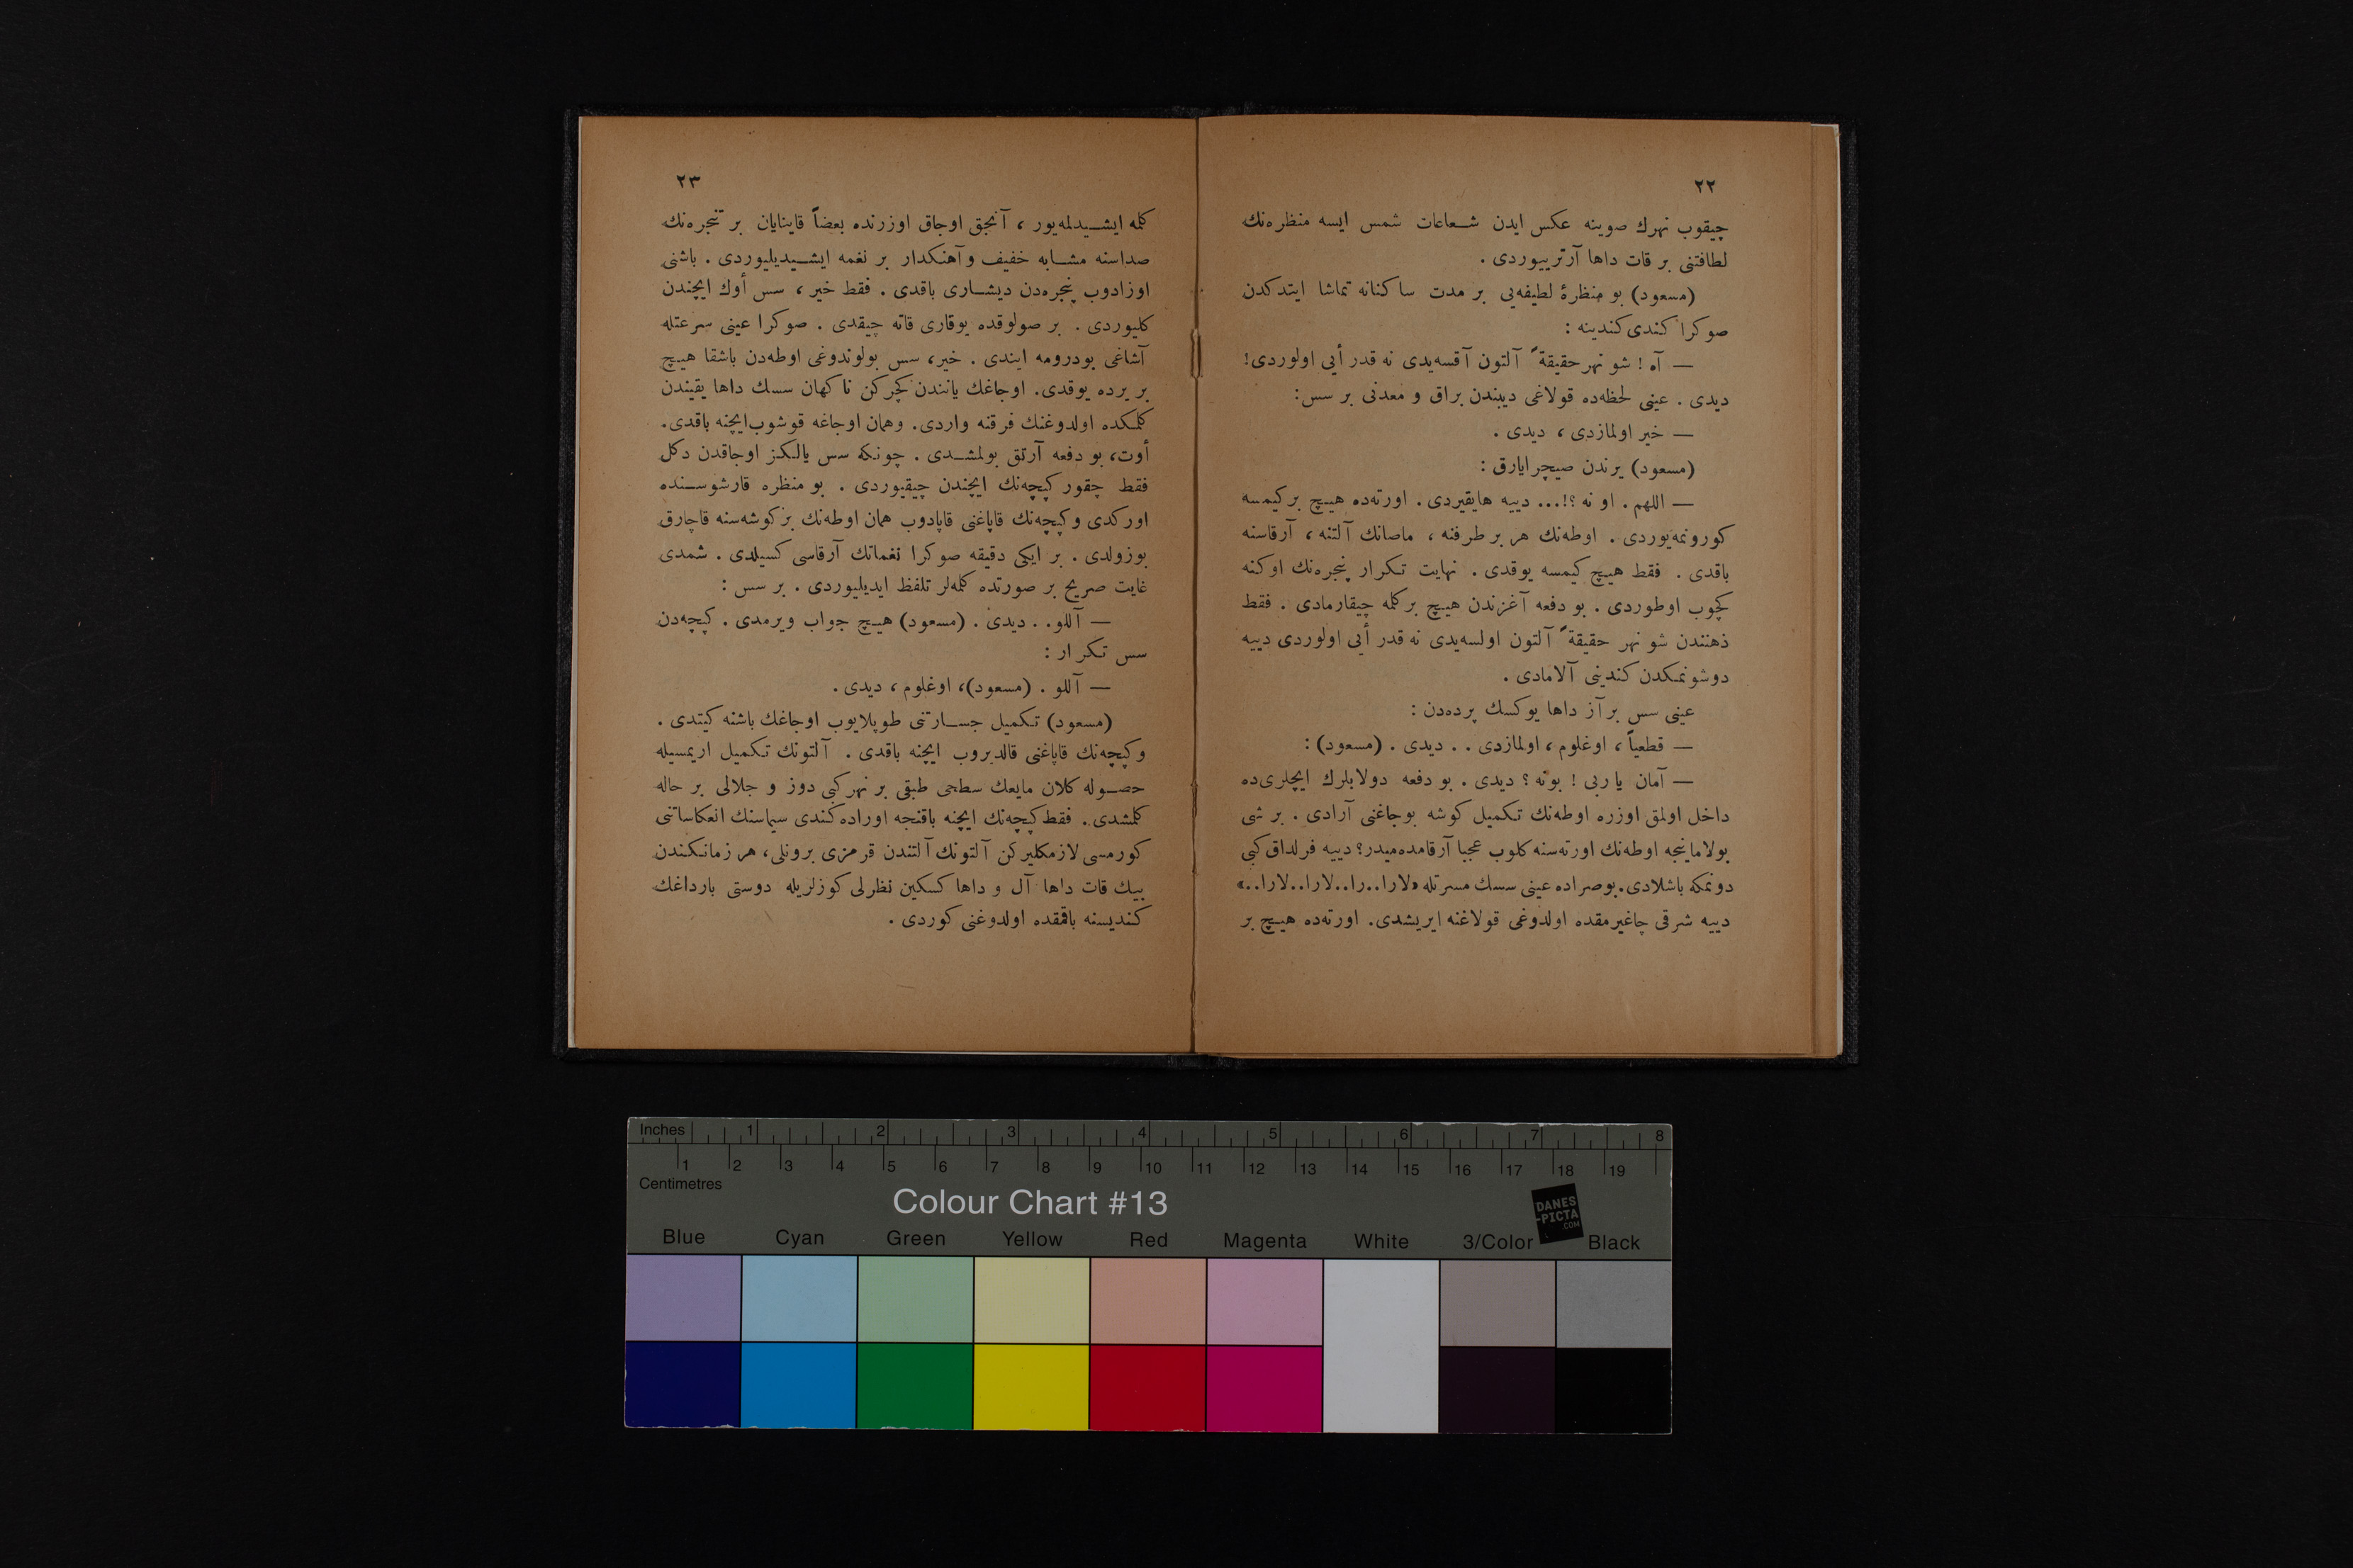 ٢٢
چیقوب نهرك صوینه عكس ایدن شعاعات شمس ایسه منظره‌نك
لطافتنی بر قات داها آرتیرییوردی .
(مسعود) بو منظرهٔ لطیفه‌یی بر مدت ساكنانه تماشا ایتدكدن
صوكرا كندی كندینه :
— آه ! شو نهر حقیقةً آلتون آقسه‌یدی نه قدر أیی اولوردی!
دیدی . عینی لحظه‌ده قولاغی دیبندن براق و معدنی بر سس:
— خیر اولمازدی ، دیدی .
(مسعود) یرندن صیچرایارق :
— اللهم . او نه ؟!... دییه هایقیردی . اورته‌ده هیچ بر كیمسه
كورونمه‌یوردی . اوطه‌نك هر بر طرفنه ، ماصانك آلتنه ، آرقاسنه
باقدی . فقط هیچ كیمسه یوقدی . نهایت تكرار پنجره‌نك اوكنه
كچوب اوطوردی . بو دفعه آغزندن هیچ بر كلمه چیقارمادی . فقط
ذهنندن شو نهر حقیقةً آلتون اولسه‌یدی نه قدر أیی اولوردی دییه
دوشونمكدن كندینی آلامادی .
عینی سس بر آز داها یوكسك پرده‌دن :
— قطعیاً ، اوغلوم ، اولمازدی . . دیدی . (مسعود) :
— آمان یاربی ! بونه ؟ دیدی . بو دفعه دولابلرك ایچلری‌ده
داخل اولمق اوزره اوطه‌نك تكمیل كوشه بوجاغنی آرادی . بر شی
بولاماینجه اوطه‌نك اورته‌سنه كلوب عجبا آرقامده‌میدر؟ دییه فرلداق كبی
دونمكه باشلادی. بوصراده عینی سسك مسرتله «لارا..را..لارا..لارا..»
دییه شرقی چاغیرمقده اولدوغی قولاغنه ایریشدی. اورته‌ده هیچ بر
٢٣
كلمه ایشیدلمه‌یور ، آنجق اوجاق اوزرنده بعضاً قاینایان بر تنجره‌نك
صداسنه مشابه خفیف و آهنكدار بر نغمه ایشیدیلیوردی . باشنی
اوزادوب پنجره‌دن دیشاری باقدی . فقط خیر ، سس أوك ایچندن
كلیوردی . بر صولوقده یوقاری قاته چیقدی . صوكرا عینی سرعتله
آشاغی بودرومه ایندی . خیر، سس بولوندوغی اوطه‌دن باشقا هیچ
بر یرده یوقدی. اوجاغك یانندن كچركن ناكهان سسك داها یقیندن
كلمكده اولدوغنك فرقنه واردی. وهمان اوجاغه قوشوب ایچنه باقدی.
أوت، بو دفعه آرتق بولمشدی . چونكه سس یالكز اوجاقدن دكل
فقط چقور كپچه‌نك ایچندن چیقیوردی . بو منظره قارشوسنده
اوركدی و كپچه‌نك قاپاغنی قاپادوب همان اوطه‌نك بر كوشه‌سنه قاچارق
بوزولدی . بر ایكی دقیقه صوكرا نغماتك آرقاسی كسیلدی . شمدی
غایت صریح بر صورتده كلمه‌لر تلفظ ایدیلیوردی . بر سس :
— آللو. . دیدی . (مسعود) هیچ جواب ویرمدی . كپچه‌دن
سس تكرار :
— آللو . (مسعود)، اوغلوم ، دیدی .
(مسعود) تكمیل جسارتنی طوپلایوب اوجاغك باشنه كیتدی .
و كپچه‌نك قاپاغنی قالدیروب ایچنه باقدی . آلتونك تكمیل اریمسیله
حصوله كلان مایعك سطحی طبقی بر نهر كبی دوز و جلالی بر حاله
كلمشدی . فقط كپچه‌نك ایچنه باقنجه اوراده كندی سیماسنك انعكاساتنی
كورمسی لازمكلیركن آلتونك آلتندن قرمزی برونلی، هر زمانكندن
بیك قات داها آل و داها كسكین نظرلی كوزلریله دوستی بارداغك
كندیسنه باقمقده اولدوغنی كوردی .
Inches 1 2 3 4 5 6 7 8
1 2 3 4 5 6 7 8 9 10 11 12 13 14 15 16 17 18 19
Centimetres
Colour Chart #13
DANES
-PICTA
.COM
Blue Cyan Green Yellow Red Magenta White 3/Color Black